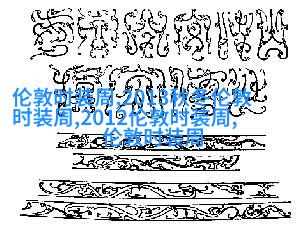 伦敦时装周,2013秋冬伦敦
时装周,2012伦敦时装周,
伦敦时装周